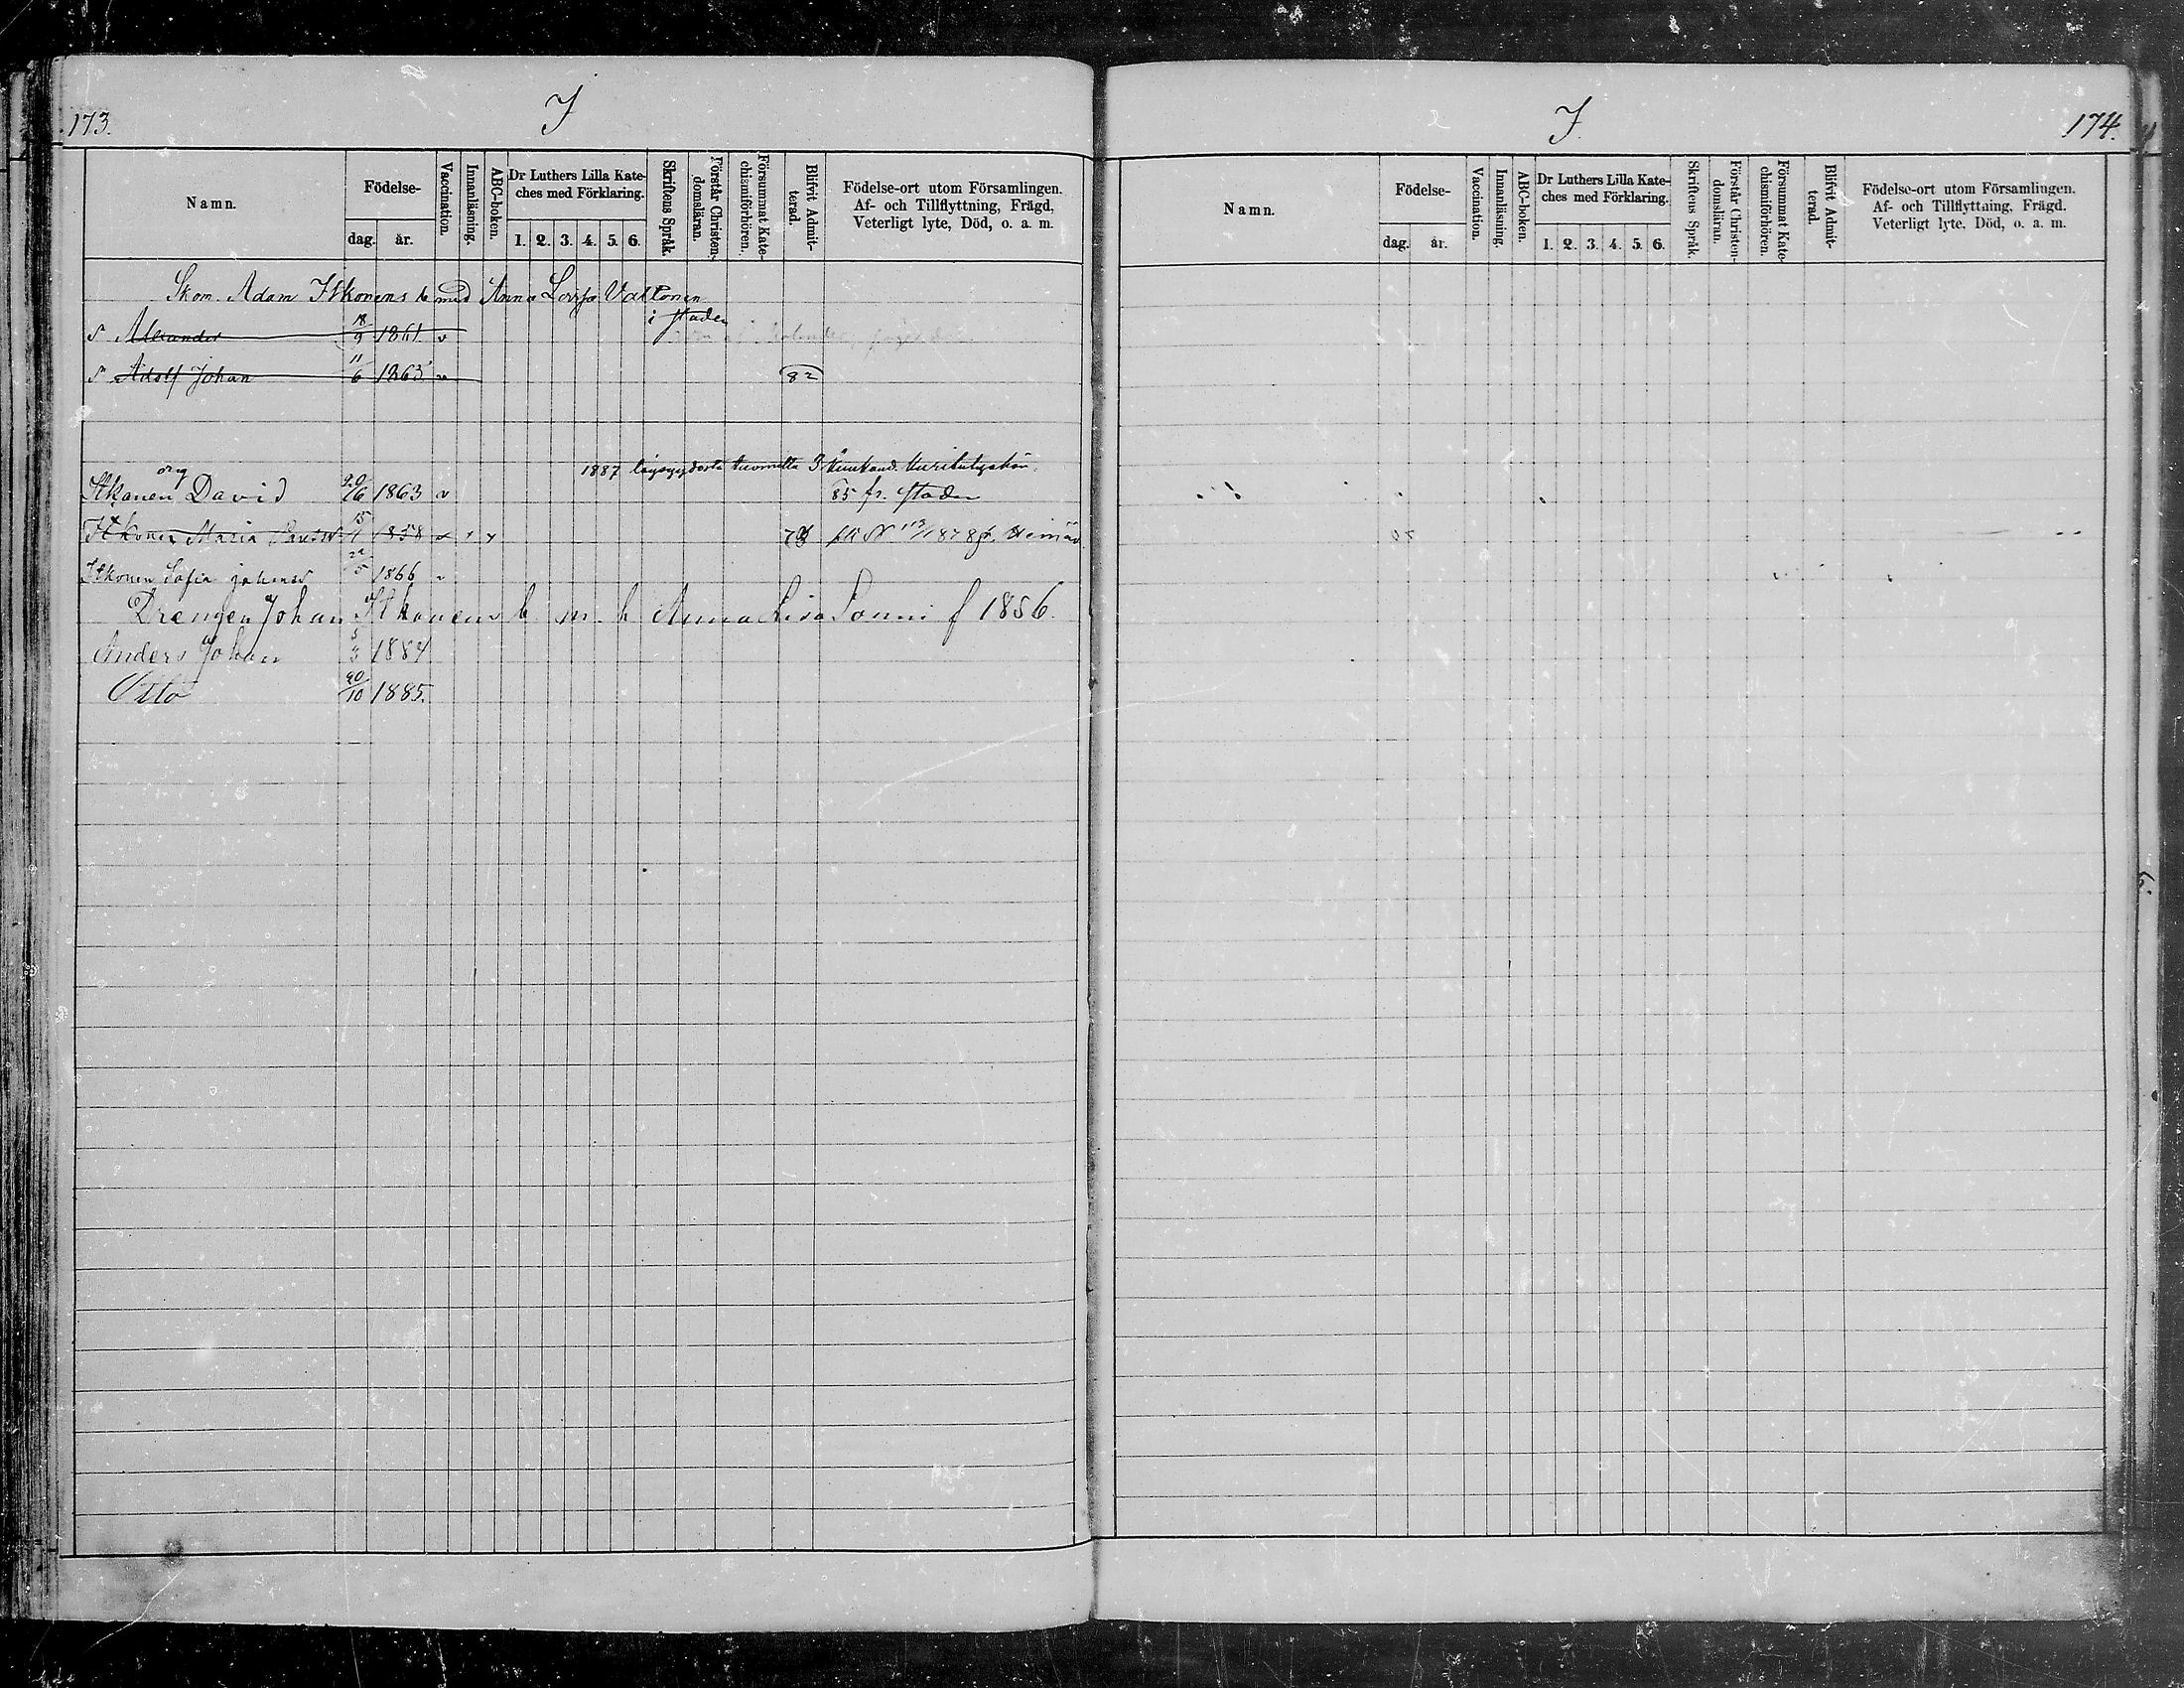 173.
I
Namn.
Födelse-
dag. år.
Vaccination.
Innanläsning.
ABC-boken.
Dr Luthers Lilla Kate-
ches med Förklaring.
1. 2. 3. 4. 5. 6.
Skriftens Språk.
Förstår Christen-
domsläran.
Försummat Kate-
chismiförhören.
Blifvit Admit-
terad.
Födelse-ort utom Församlingen.
Af- och Tillflyttning, Frägd,
Veterligt lyte, Död, o. a. m.
Skom. Adam Itkonens b med Anna Lovisa Valtonen
i staden
s Alexander 18/9 1861 v
s Adolf Johan 11/6 1863 v 82
1887
Itkonen David 20/6 1863 v 85 fr. staden
Itkonen Maria 15 1858 v
Itkonen Sofia 22/5 1866 v
Drengen Johan Itkonens b. m. h Anna Lisa Sonni f 1856.
Anders Johan 5/3 1884
Otto 20/10 1885.
I.
174.
Namn.
Födelse-
dag. år.
Vaccination.
Innanläsning.
ABC-boken.
Dr Luthers Lilla Kate-
ches med Förklaring.
1. 2. 3. 4. 5. 6.
Skriftens Språk.
Förstår Christen-
domsläran.
Försummat Kate-
chismiförhören.
Blifvit Admit-
terad.
Födelse-ort utom Församlingen.
Af- och Tillflyttning, Frägd.
Veterligt lyte, Död, o. a. m.